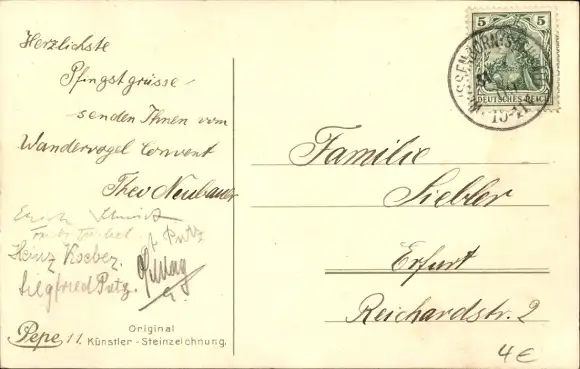 Herzlichste
Pfingstgrüsse
senden Ihnen vom
Wandervogel Convent
Theo Neubauer
Putz
Heinz Koeber.
Siegfried Putz.
Pepe, 11. Original
Künstler - Steinzeichnung.
5 5
DEUTSCHES REICH
Familie
Siebler
Erfurt
Reichardstr. 2
4€